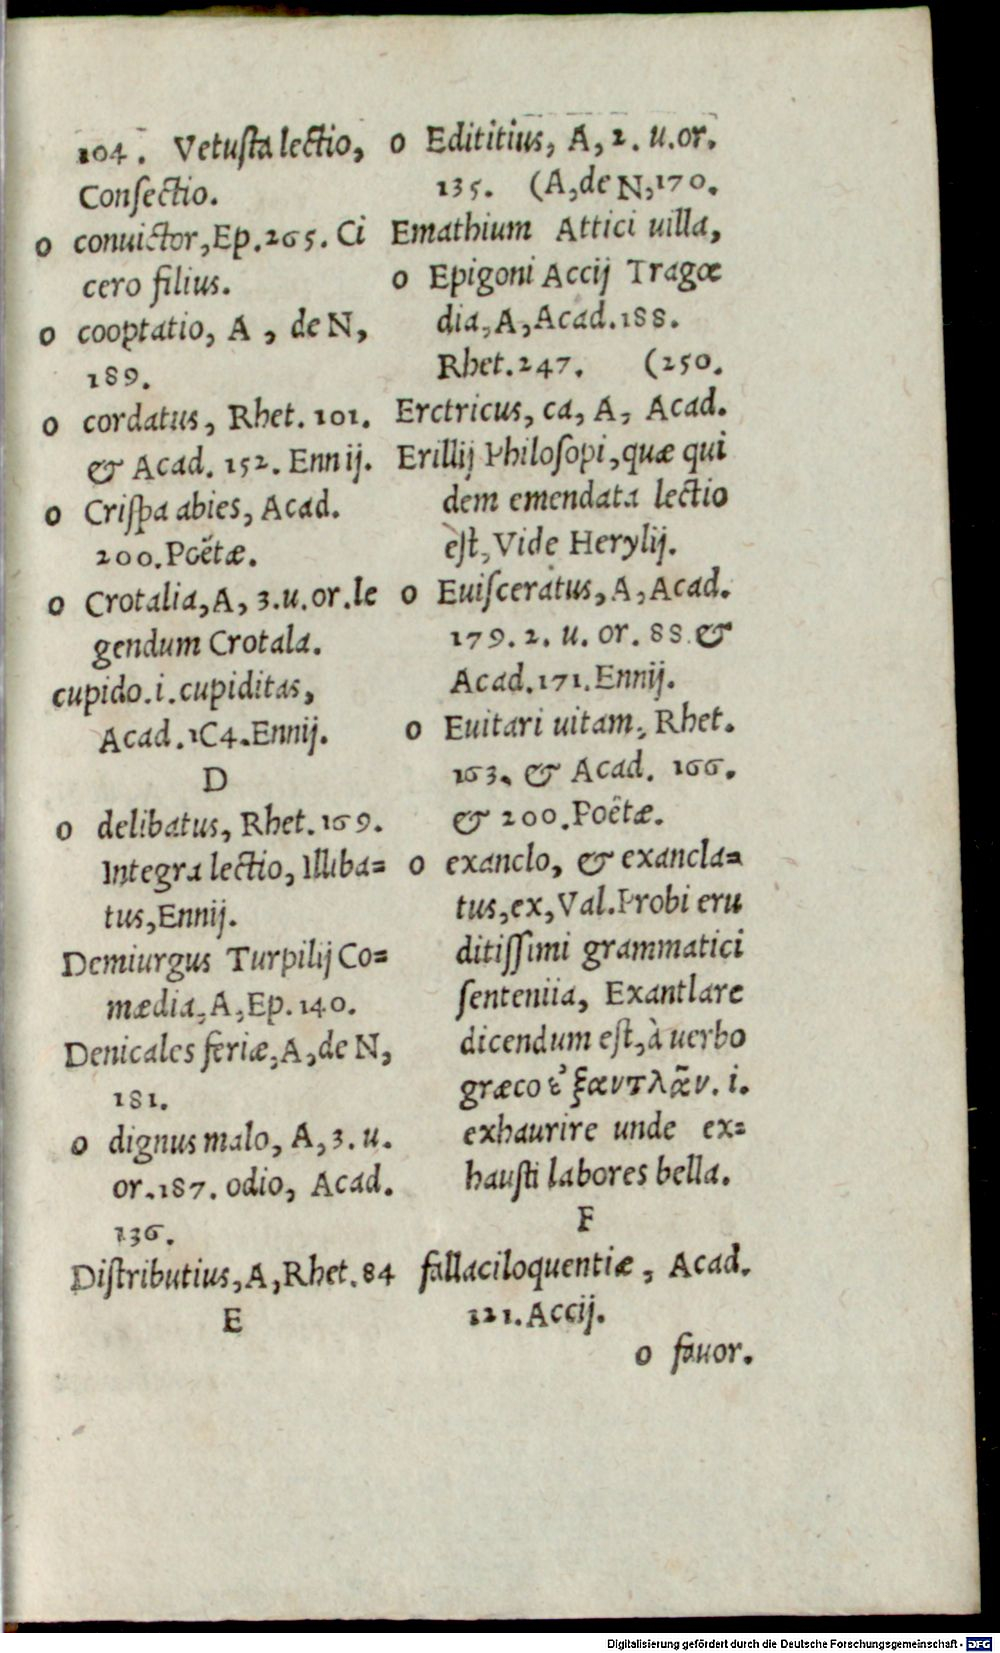 104. Vetusta lectio,
Consectio.
o conuictor, Ep. 265. Ci
cero filius.
o cooptatio, A, de N,
189.
o cordatus, Rhet. 101.
& Acad. 152. Ennij.
o Crispa abies, Acad.
200. Poëtæ.
o Crotalia, A, 3. u. or. le
gendum Crotala.
cupido. i. cupiditas,
Acad. 1C4. Ennij.
D
o delibatus, Rhet. 169.
Integra lectio, Illiba=
tus, Ennij.
Demiurgus Turpilij Co=
mædia, A, Ep. 140.
Denicales feriæ, A, de N,
181.
o dignus malo, A, 3. u.
or. 187. odio, Acad.
136.
Distributius, A, Rhet. 84
E
o Edititius, A, 2. u. or.
135. (A, de N, 170.
Emathium Attici uilla,
o Epigoni Accij Tragœ
dia, A, Acad. 188.
Rhet. 247. (250.
Erctricus, ca, A, Acad.
Erillij Philosopi, quæ qui
dem emendata lectio
est, Vide Herylij.
o Euisceratus, A, Acad.
179. 2. u. or. 88. &
Acad. 171. Ennij.
o Euitari uitam, Rhet.
163. & Acad. 166.
& 200. Poëtæ.
o exanclo, & exancla=
tus, ex, Val. Probi eru
ditissimi grammatici
senteniia, Exantlare
dicendum est, à uerbo
græco ἐξαντλᾶν. i.
exhaurire unde ex=
hausti labores bella.
F
fallaciloquentiæ, Acad.
121. Accij.
o fauor.
Digitalisierung gefördert durch die Deutsche Forschungsgemeinschaft - DFG